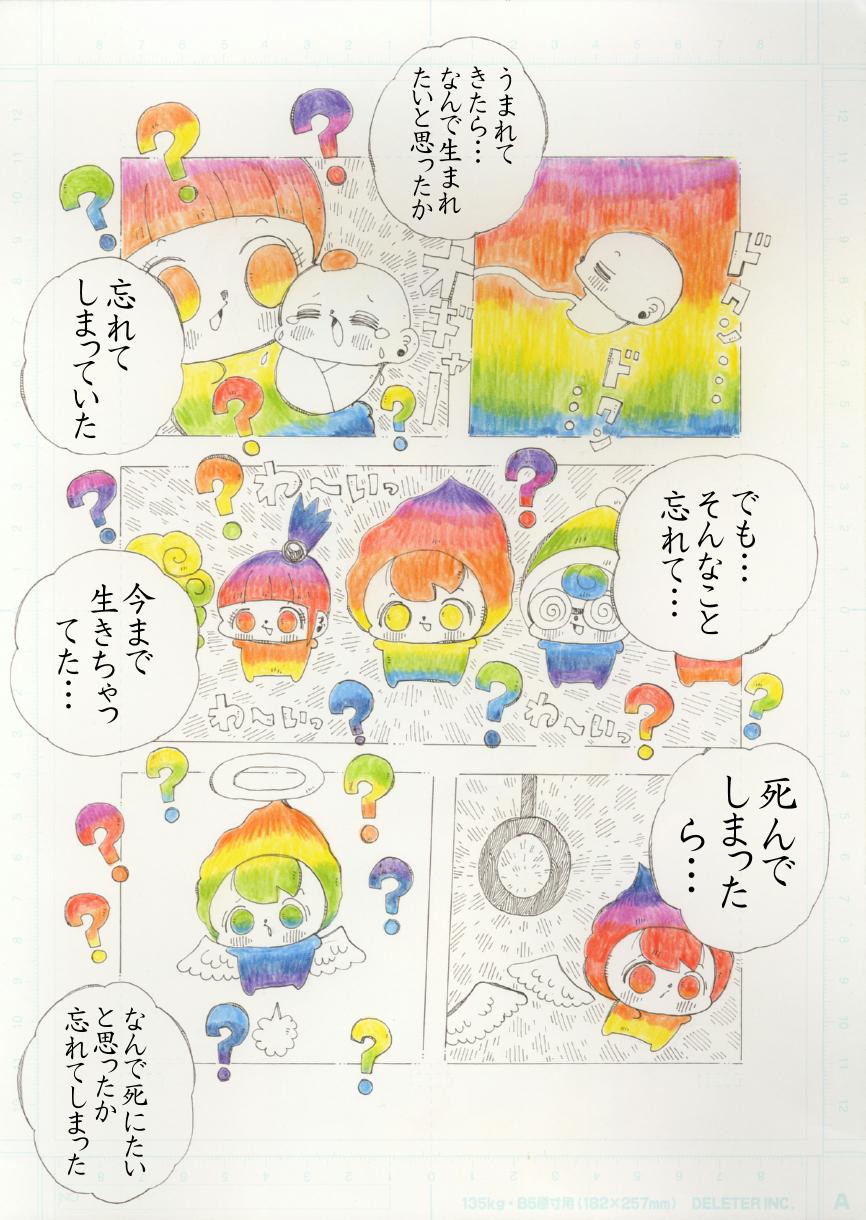 うまれて
きたら…
なんで生まれ
たいと思ったか
ドクン……
ドクン…
オギャー
忘れて
しまっていた
でも…
そんなこと
忘れて…
わ〜いっ
わ〜いっ
わ〜いっ
今まで
生きちゃっ
てた…
死んで
しまった
ら…
なんで死にたい
と思ったか
忘れてしまった
135kg・B5原寸用(182×257mm) DELETER INC. A